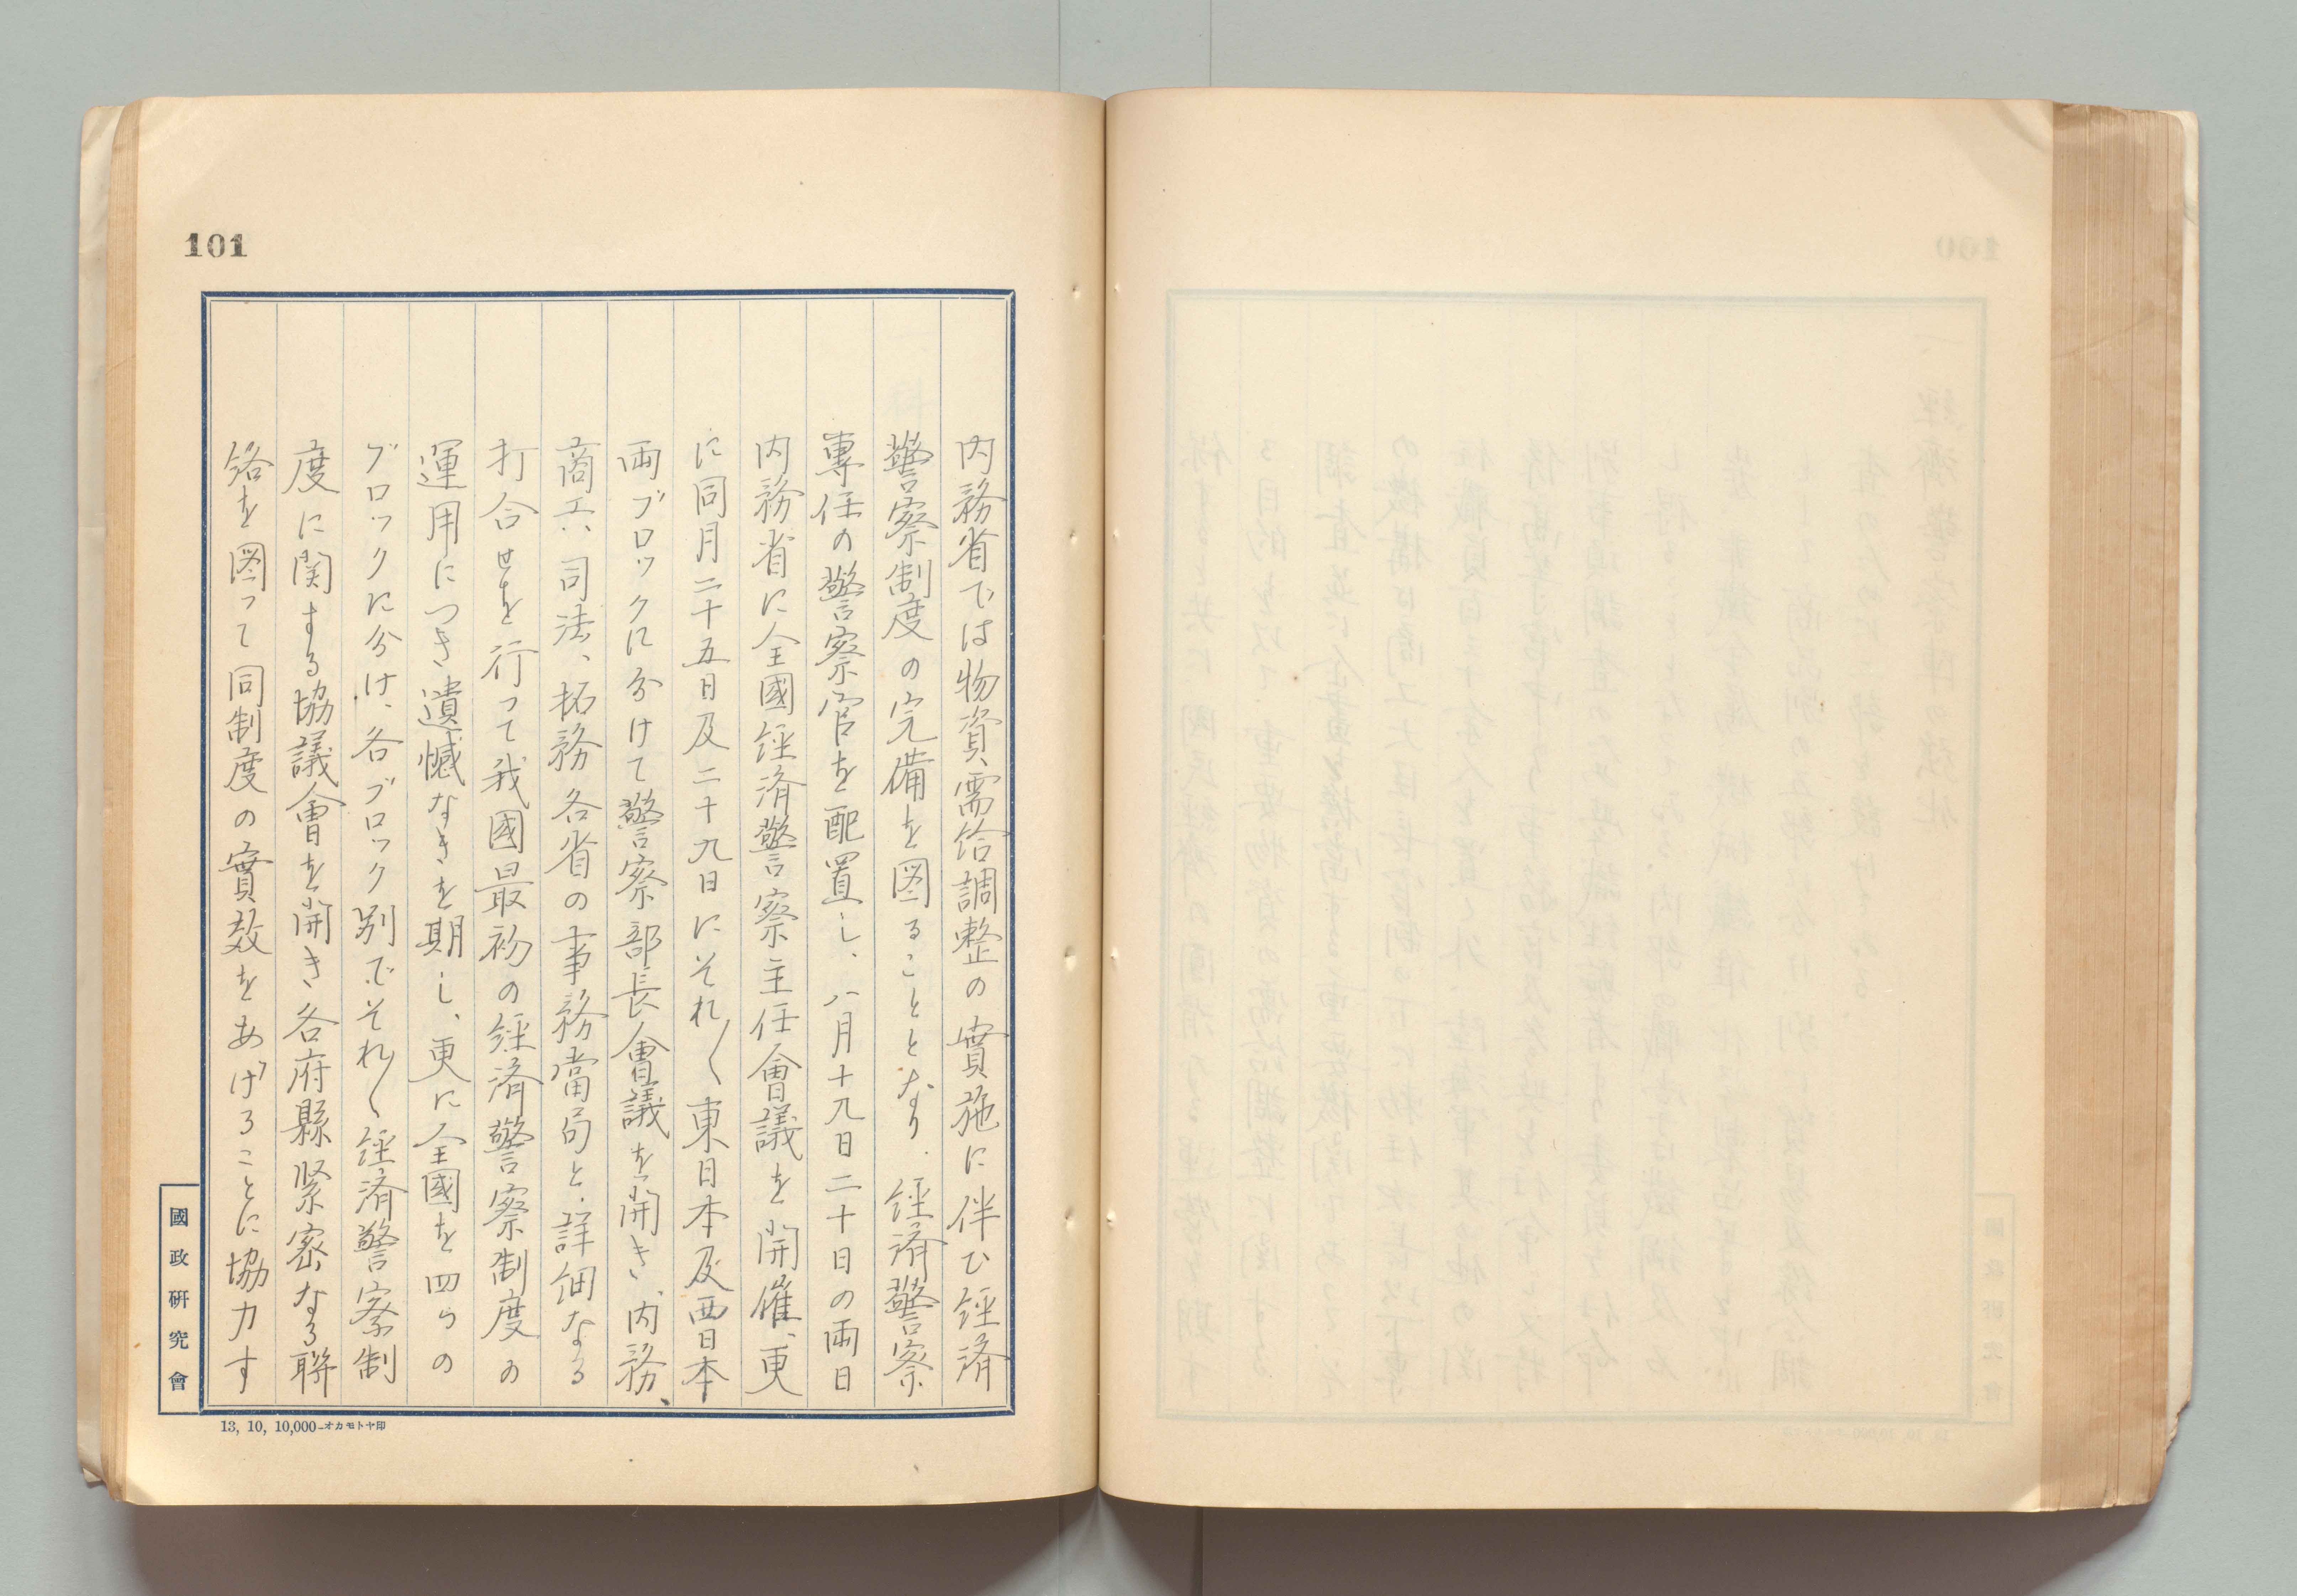 101
内務省では物資需給調整の實施に伴ひ経済
警察制度の完備を図ることとなり、経済警察
專任の警察官を配置し、八月十九日二十日の両日
内務省に全國経済警察主任會議を開催、更
に同月二十五日及二十九日にそれ〱東日本及西日本
両ブロックに分けて警察部長會議を開き、内務、
商工、司法、拓務各省の事務當局と詳細なる
打合せを行つて我國最初の経済警察制度の
運用につき遺憾なきを期し、更に全國を四つの
ブロックに分け、各ブロック別でそれ〱経済警察制
度に関する協議會を開き各府縣緊密なる聯
絡を図つて同制度の實效をあげることに協力す
國政研究會
13, 10, 10,000-オカモトヤ印